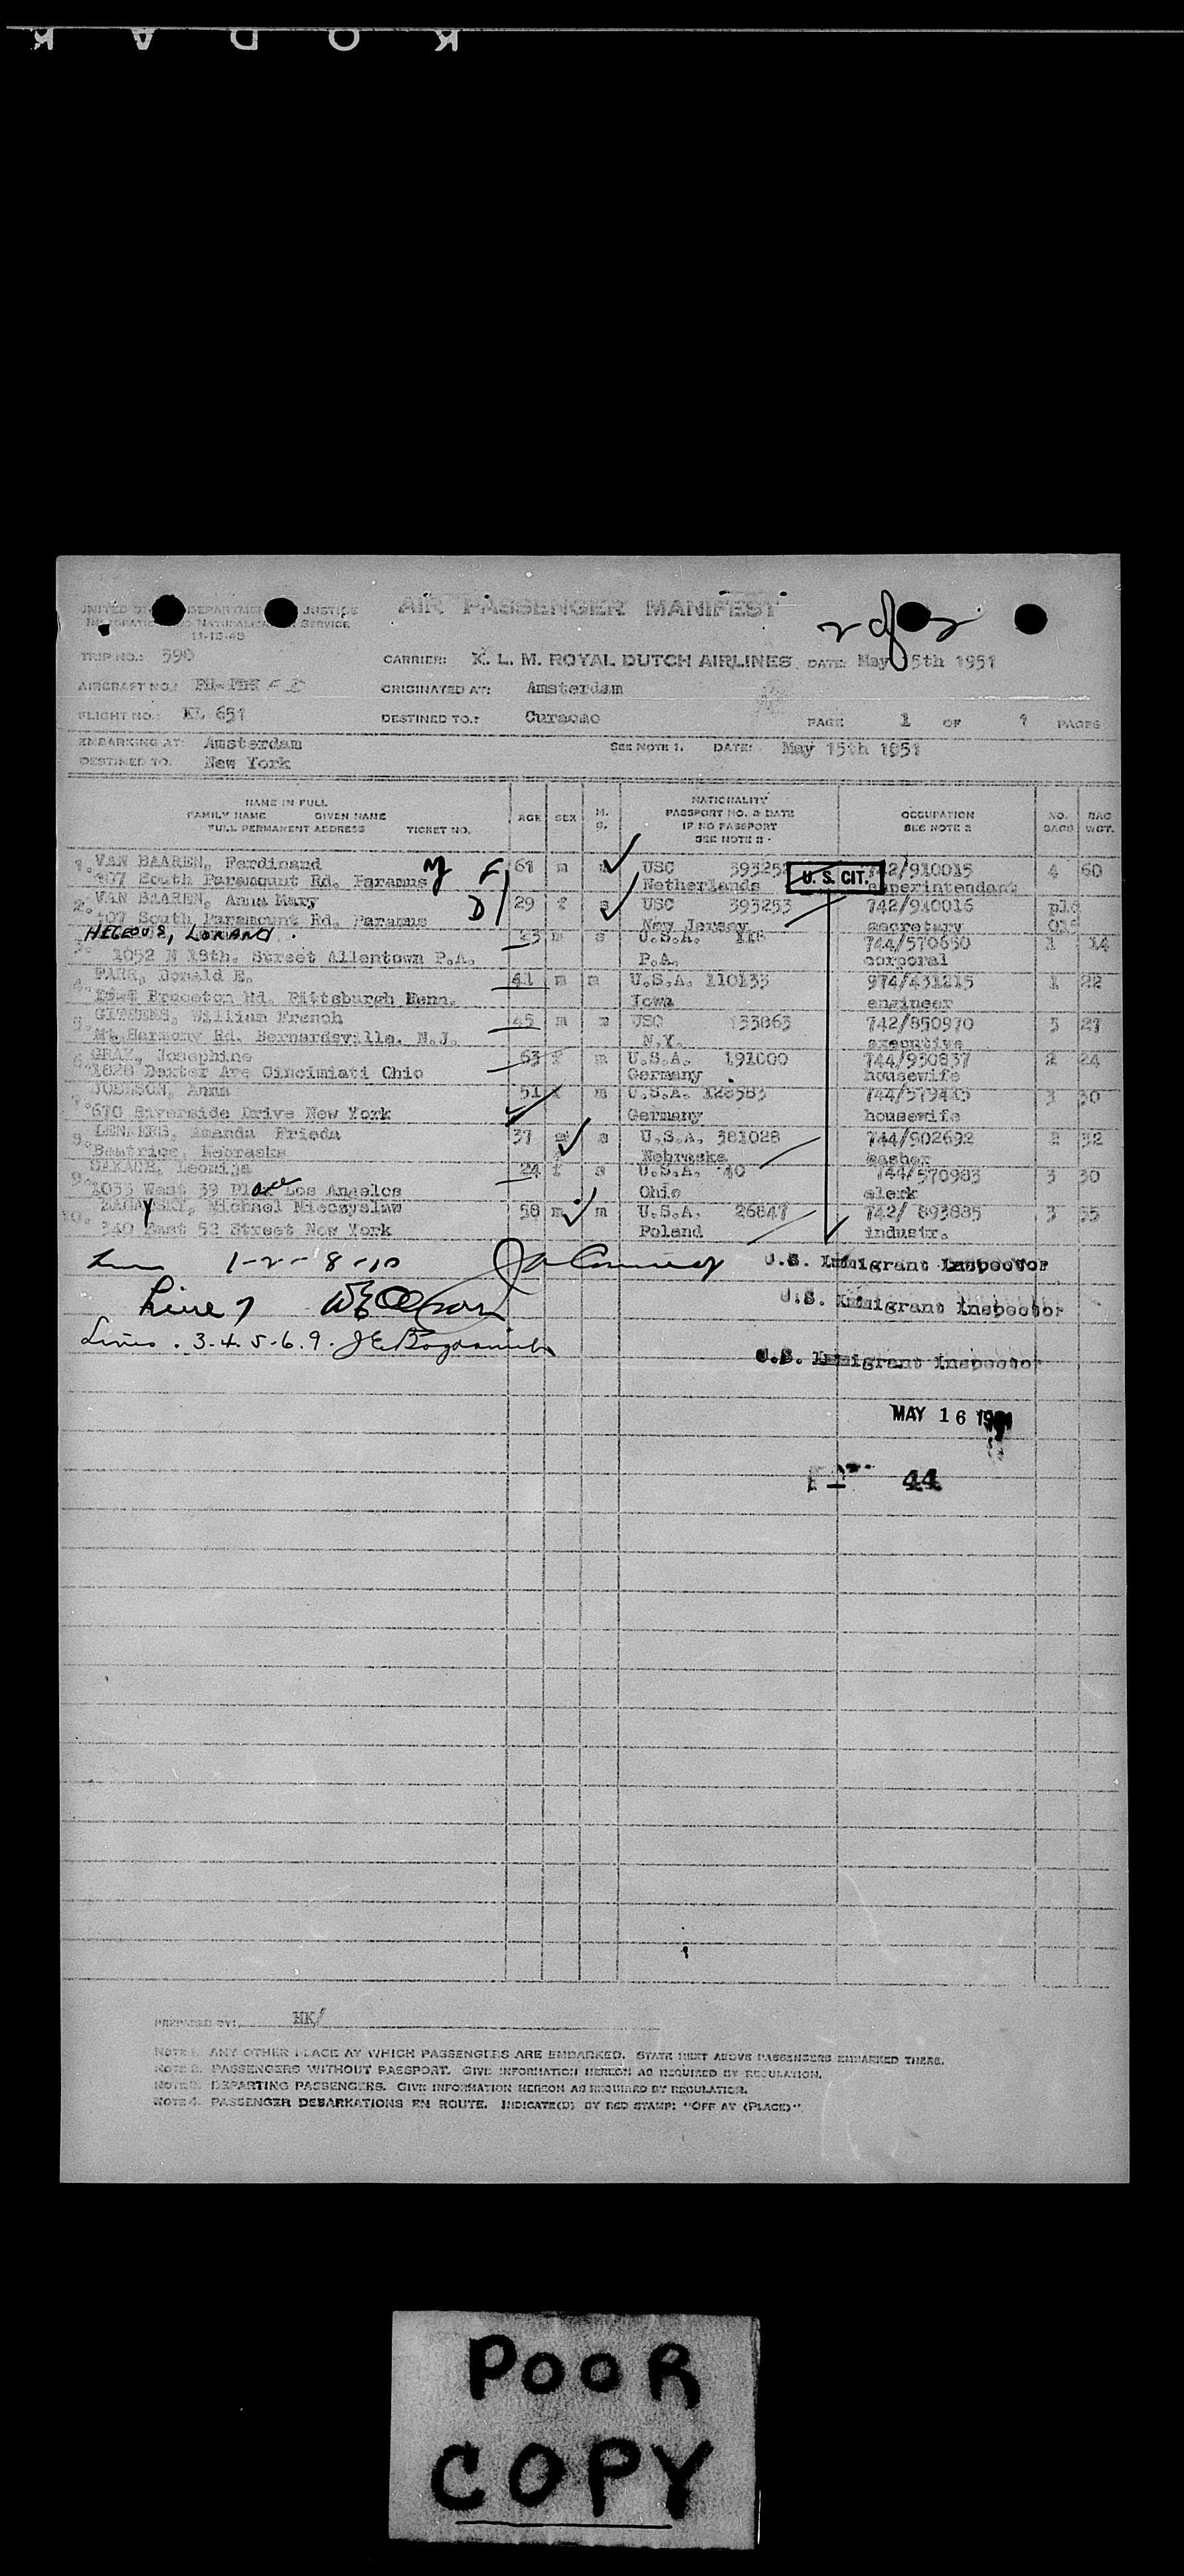 KODAK
UNITED ST DEPARTMEN JUSTICE
NATURALIZA SERVICE
11-13-48
AIR PASSENGER MANIFEST
2 of 2
TRIP NO.: 590
CARRIER: K. L. M. ROYAL DUTCH AIRLINES DATE: May 15th 1951
AIRCRAFT NO.:
ORIGINATED AT: Amsterdam
FLIGHT NO.: KL 651
DESTINED TO.: Curacao
PAGE 1 OF 1 PAGES
EMBARKING AT: Amsterdam
SEE NOTE 1. DATE: May 15th 1951
DESTINED TO. New York
NAME IN FULL
FAMILY NAME GIVEN NAME
FULL PERMANENT ADDRESS TICKET NO.
AGE SEX M. S.
NATIONALITY
PASSPORT NO. & DATE
IF NO PASSPORT
SEE NOTE 2
OCCUPATION
SEE NOTE 2
NO. BAGS
BAG WGT.
1. VAN BAAREN, Ferdinand 61 m USC 4 60
407 South Paramount Rd. Paramus Netherlands superintendant
U. S. CIT.
2. VAN BAAREN, Anna Mary 29 f s USC 593253 742/910016
407 South Paramount Rd. Paramus New Jersey secretary
HEGEOUS, LORAND.
3. m s U.S.A. 744/570650 1 14
1052 N 18th. Street Allentown P.A. P.A. corporal
4. Donald E. 41 m m U.S.A. 110135 974/431215 1 22
Rd. Pittsburgh Penn. Iowa engineer
5. William French 45 m USC 135863 742/850970 3 27
Mt. Harmony Rd. Bernardsville. N.J. N.Y. executive
6. GRAY, Josephine 63 f m U.S.A. 191000 744/930837 2 24
1828 Dexter Ave Cincimiati Ohio Germany housewife
7. Anna 51 f m U.S.A. 3 30
670 Riverside Drive New York Germany housewife
8. Amanda Frieda 37 s U.S.A. 381028 744/902692 2 32
Beatrice, Nebraska Nebraska
9. Leonija 24 f s U.S.A. 40 744/570983 3 30
1033 West 39 Place Los Angeles Ohio clerk
10. Michael Mieczyslaw 58 m m U.S.A. 26847 742/ 893885 3 35
340 East 52 Street New York Poland industr.
Lines 1-2--8-10 U.S. Immigrant Inspector
Line 7 U.S. Immigrant Inspector
Lines. 3.4.5.6.9. U.S. Immigrant Inspector
MAY 16 1951
44
PREPARED BY: HK/
NOTE 1. ANY OTHER PLACE AT WHICH PASSENGERS ARE EMBARKED. STATE NEXT ABOVE PASSENGERS EMBARKED THERE.
NOTE 2. PASSENGERS WITHOUT PASSPORT. GIVE INFORMATION HEREON AS REQUIRED BY REGULATION.
NOTE 3. DEPARTING PASSENGERS. GIVE INFORMATION HEREON AS REQUIRED BY REGULATION.
NOTE 4. PASSENGER DEBARKATIONS EN ROUTE. INDICATE(D) BY RED STAMP: "OFF AT (PLACE)".
POOR
COPY